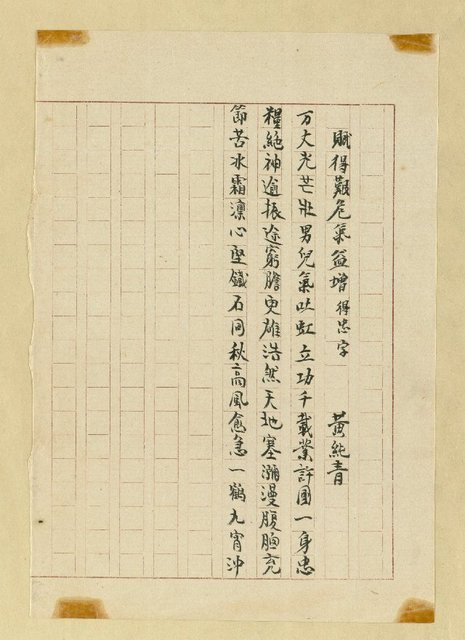 賦得艱危氣益增 得忠字　黃純青
万丈光芒壯男兒氣吐虹立功千載業許國一身忠
糧絕神逾振途窮膽更雄浩然天地塞瀰漫腹胸充
節苦冰霜凛心堅鐵石同秋高風愈急一鶴九宵沖